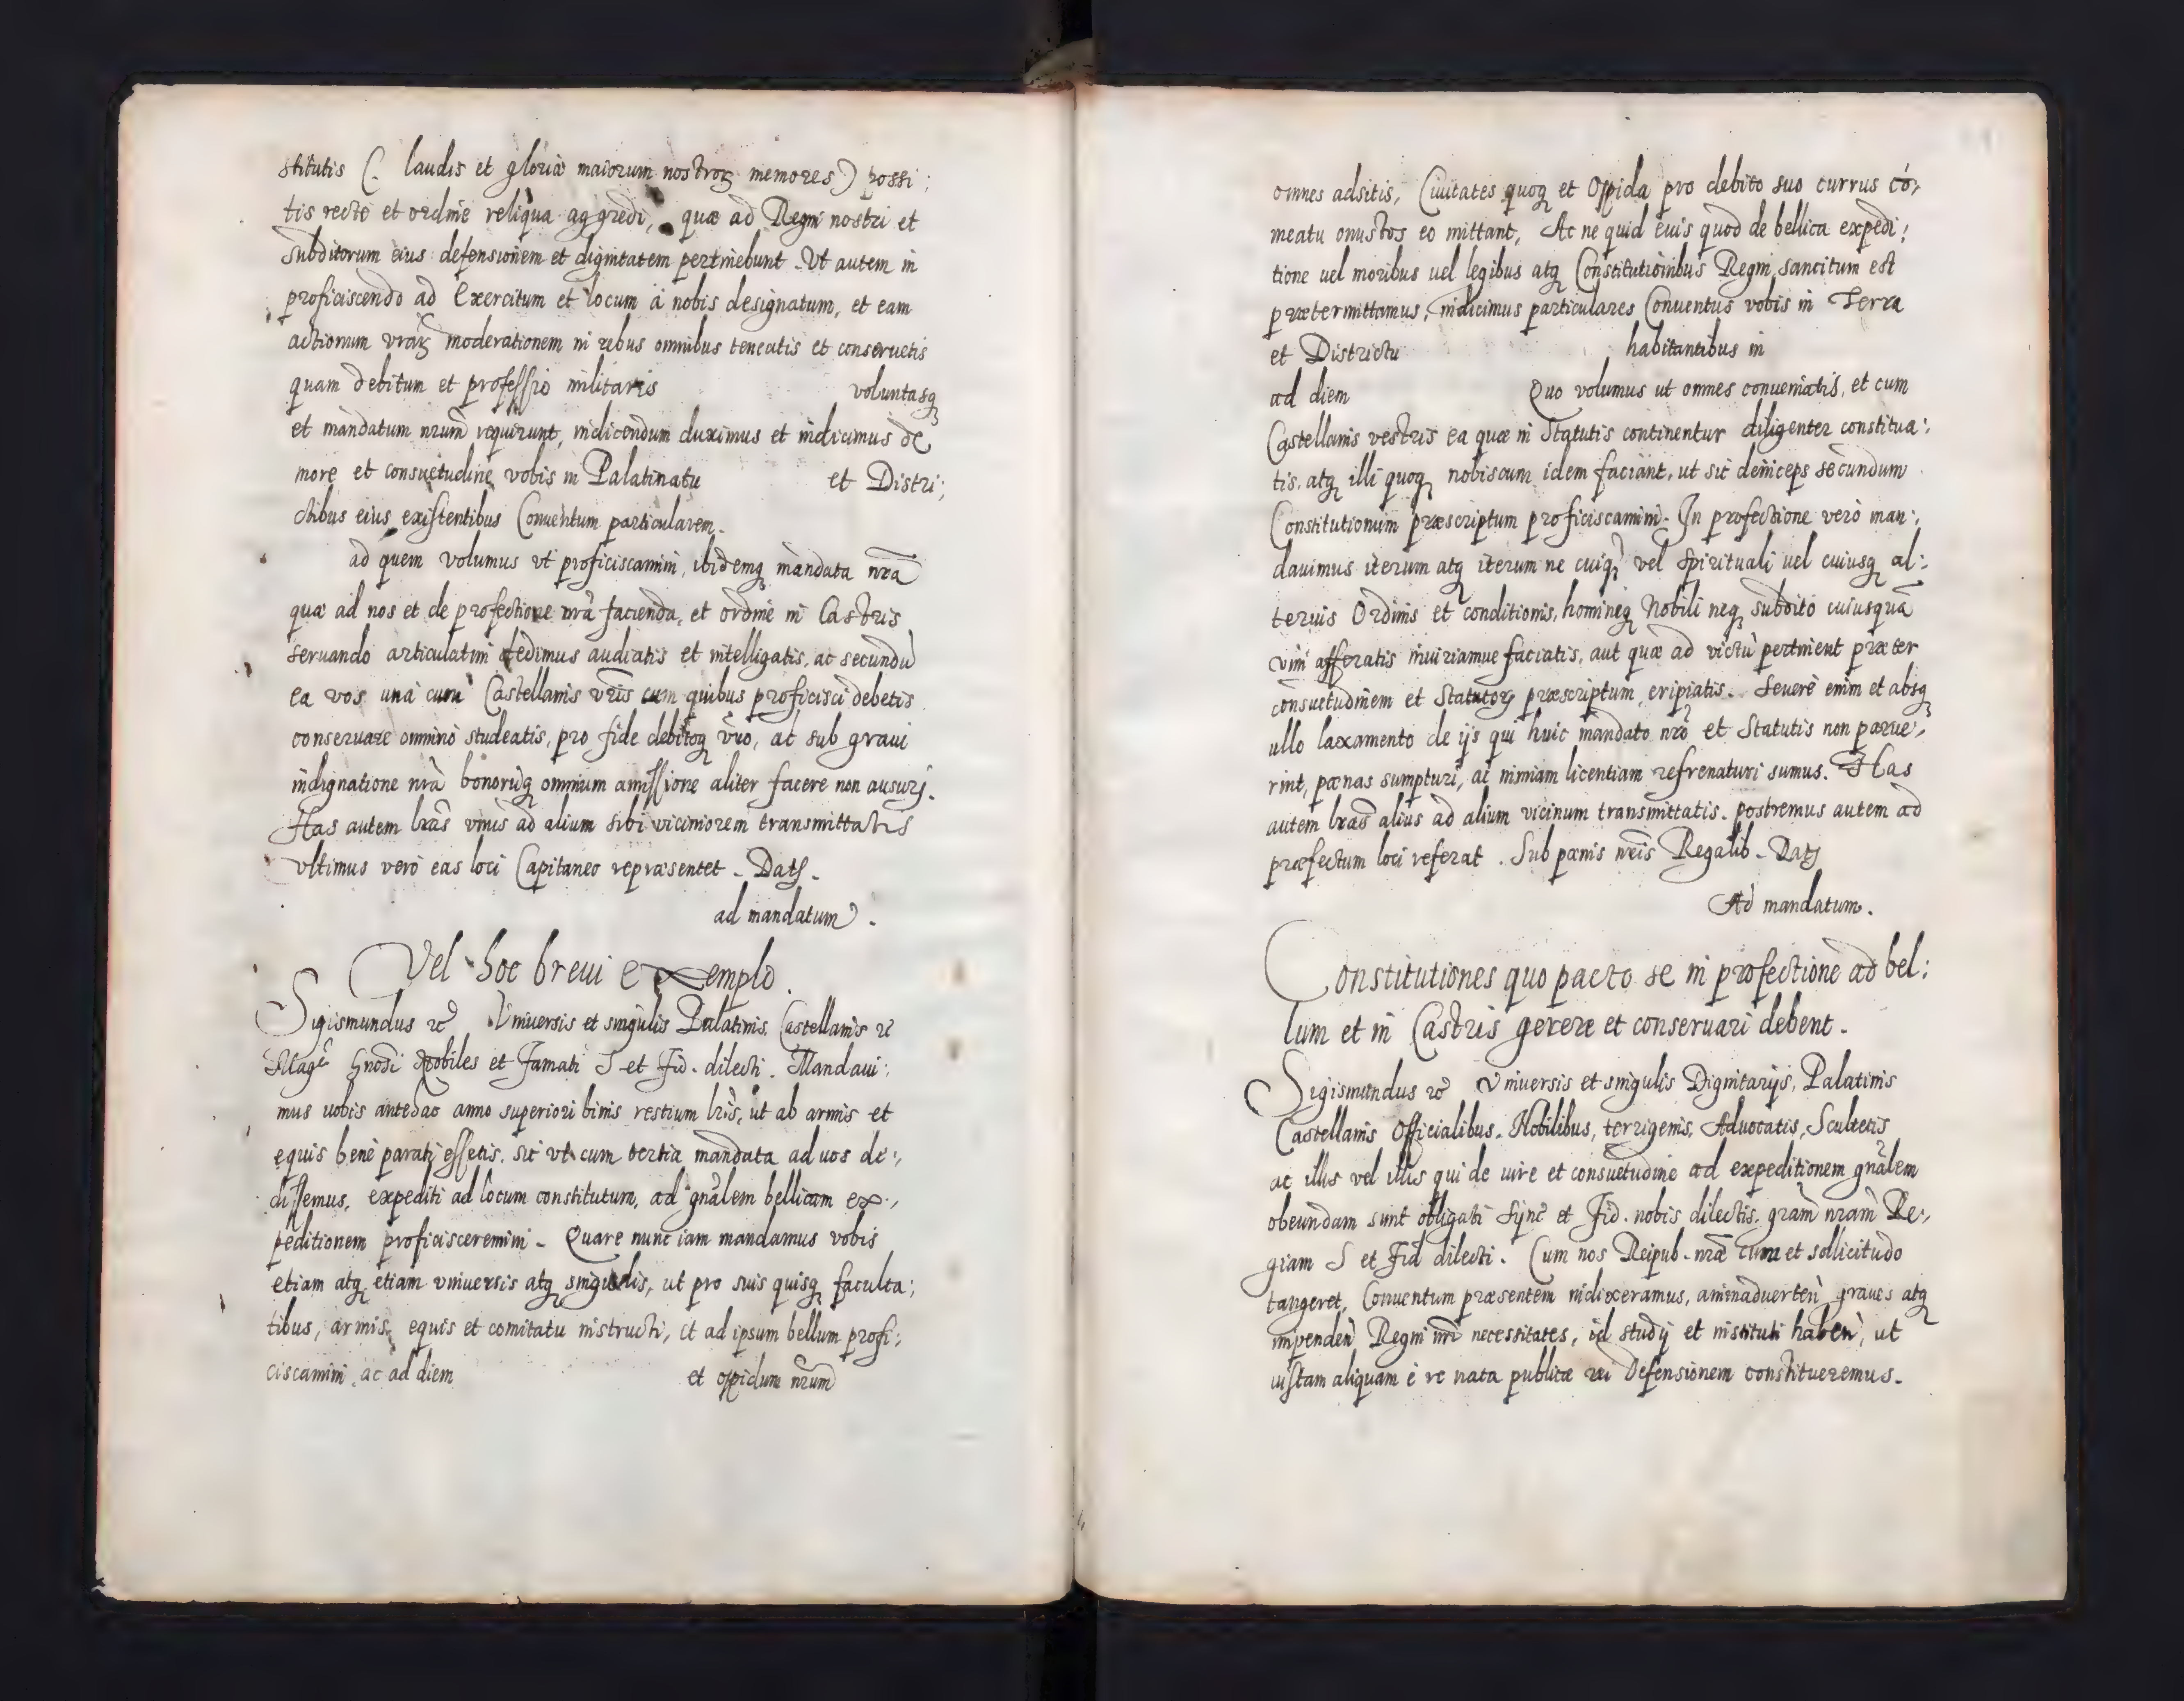 stitutis (: laudis et gloriæ maiorum nostroꝝ memores) possi:
tis recte et ordine reliqua aggredi, quæ ad Regni nostri et
subditorum eius defensionem et dignitatem pertinebunt. Ut autem in
proficiscendo ad Exercitum et locum à nobis designatum, et eam
actionum vr̃aꝝ moderationem in rebus omnibus teneatis et conseruetis
quam debitum et professio militaris voluntasq
et mandatum nr̃um requirunt, indicendum duximus et indicimus de
more et consuetudine vobis in Palatinatu et Distri:
ctibus eius existentibus Conuentum particularem.
ad quem volumus vt proficiscamini, ibidemq mandata nr̃a
quæ ad nos et de profectione nr̃a facienda, et ordine in Castris
seruando articulatim dedimus audiatis et intelligatis, ac secundũ
ea vos unà cum Castellanis vr̃is cum quibus proficisci debetis
conseruare omninò studeatis, pro fide debitoq vr̃o, ac sub graui
indignatione nr̃a bonorũq omnium amissione aliter facere non ausurj.
Has autem lr̃as vnus ad alium sibi viciniorem transmittatis
vltimus verò eas loci Capitaneo repræsentet. Datꝭ.
ad mandatum.
Vel hoc breui exemplo.
Sigismundus ꝛc̃ Vniuersis et singulis Palatinis, Castellanis ꝛc
Magc̃i Gnosi Nobiles et Famati S et Fid. dilecti. Mandaui:
mus uobis antedao anno superiori binis restium lr̃is, ut ab armis et
equis benè parati essetis, sic vt cum tertia mandata ad uos de:,
dissemus, expediti ad locum constitutum, ad gñalem bellicam ex:,
peditionem proficisceremini. Quare nunc iam mandamus vobis
etiam atq etiam vniuersis atq singulis, ut pro suis quisq faculta:
tibus, armis, equis et comitatu instructi, et ad ipsum bellum profi:
ciscamini ac ad diem et oppidum nr̃um
omnes adsitis, Ciuitates quoq et Oppida pro debito suo currus cõ,
meatu onustos eo mittant, Ac ne quid euis quod de bellica expedi:
tione uel moribus uel legibus atq Constitutionibus Regni sancitum est
prætermittamus, indicimus particulares Conuentus vobis in Terra
et Districtu habitantibus in
ad diem Quo volumus ut omnes conueniatis, et cum
Castellanis vestris ea quæ in Statutis continentur diligenter constitua:,
tis, atq illi quoq nobiscum idem faciant, ut sic deinceps secundum
Constitutionum præscriptum proficiscamini. In profectione verò man:,
dauimus iterum atq iterum ne cuiq vel Spirituali uel cuiusq al:
terius Ordinis et conditionis, homineq Nobili neq subdito cuiusquã
vim afferatis iniuriamue faciatis, aut quæ ad victũ pertinent præter
consuetudinem et Statutoꝝ præscriptum, eripiatis. Seuerè enim et absq
ullo laxamento de ijs qui huic mandato nr̃o et Statutis non parue:,
rint, pænas sumpturi, ac nimiam licentiam refrenaturi sumus. Has
autem lr̃as alius ad alium vicinum transmittatis. postremus autem ad
præfectum loci referat. Sub pænis nr̃is Regalib. Datꝭ
Ad mandatum.
Constitutiones quo pacto se in profectione ad bel:
lum et in Castris gerere et conseruari debent.
Sigismundus ꝛc̃ Vniuersis et singulis Dignitarijs, Palatinis
Castellanis Officialibus. Nobilibus, terrigenis, Aduocatis, Scultetis
ac illis vel illis qui de iure et consuetudine ad expeditionem gñalem
obeundam sunt obligati Sync̃ et Fid. nobis dilectis, gr̃am nr̃am Re:,
giam S et Fid dilecti. Cum nos Reipub. nr̃æ cura et sollicitudo
tangeret, Conuentum præsentem indixeramus, animaduerteñ graues atq
impendeñ Regni nr̃i necessitates, id studij et instituti habeñ, ut
iustam aliquam è re nata publicæ rei Defensionem constitueremus.